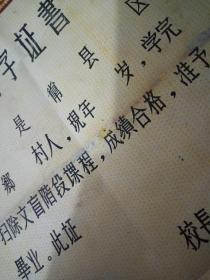 字証書
是偹縣 区
鄉 村人，現年 歲，学完
扫除文盲階段課程，成績合格，准予
畢業。此証
校長